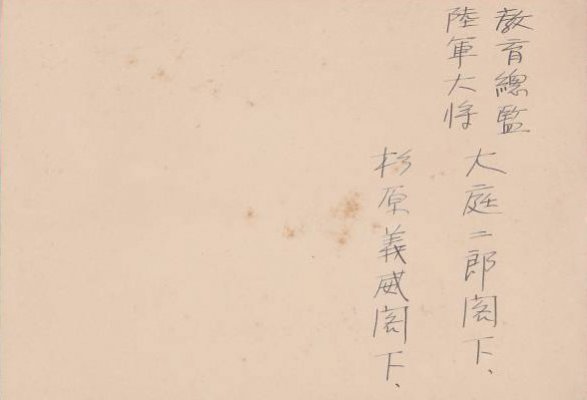 教育總監
陸軍大将
大庭二郎閣下、
杉原義威閣下、